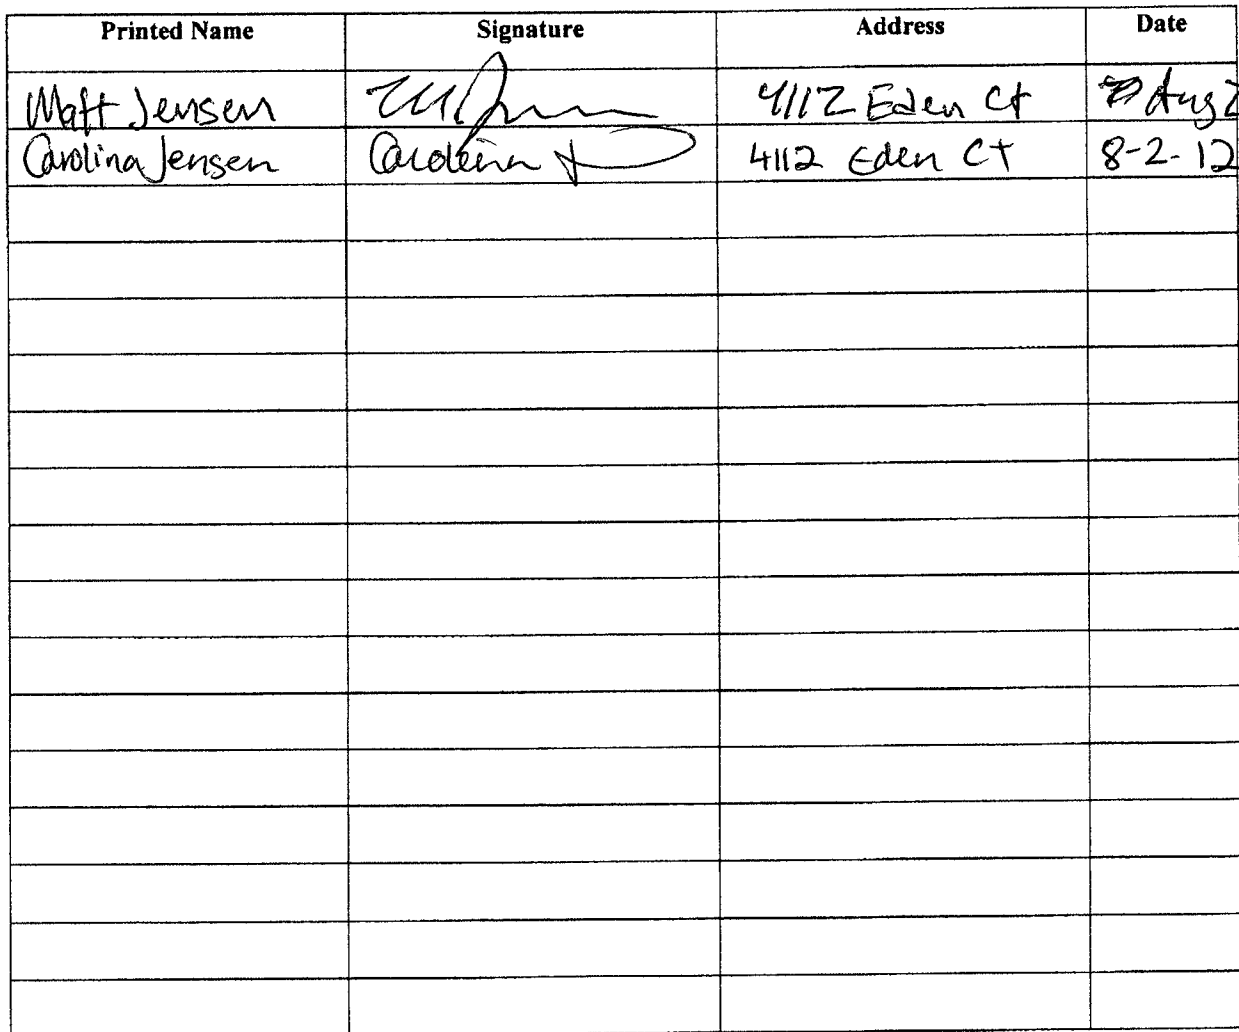 Printed Name Signature Address Date
Matt Jensen 4112 Eden Ct Aug 2
Carolina Jensen Carolina J 4112 Eden Ct 8-2-12